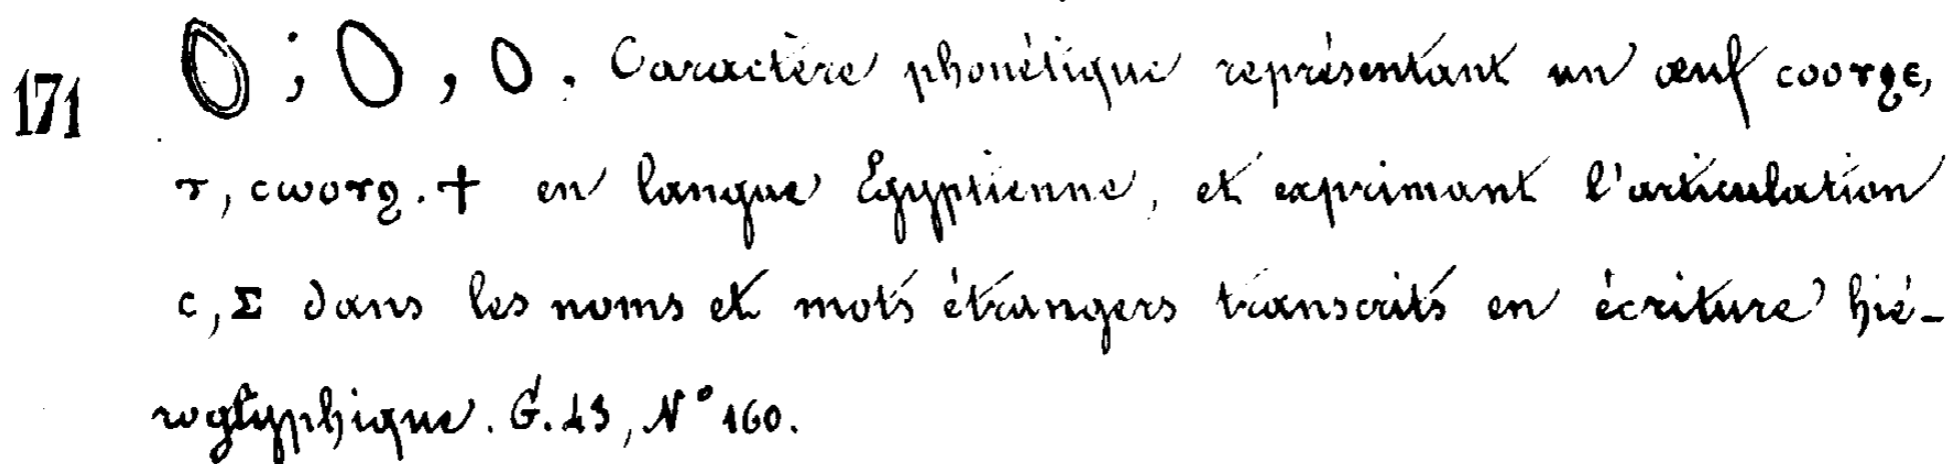 171 𓆇 ; 𓆇 , 𓆇 . Caractère phonétique représentant un œuf ⲥⲟⲟⲩϩⲉ,
ⲧ, ⲥⲱⲟⲩϩ.ϯ en langue Égyptienne, et exprimant l'articulation
ⲥ, Σ dans les noms et mots étrangers transcrits en écriture hié-
roglyphique. G. 43, N° 160.